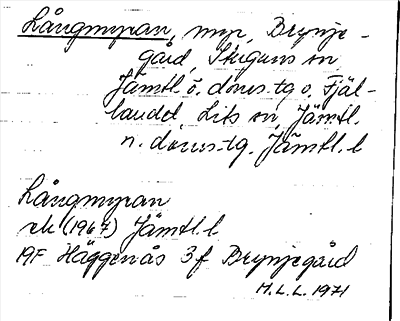 Långmyran, myr, Brynje-
gård, Stuguns sn
Jämtl. ö. doms.tg o. Fjäl-
landet, Lits sn, Jämtl.
n. doms-tg, Jämtl. l
Långmyran
ek (1967) Jämtl. l
19F Häggenås 3f Brynjegård
H.L.L. 1971